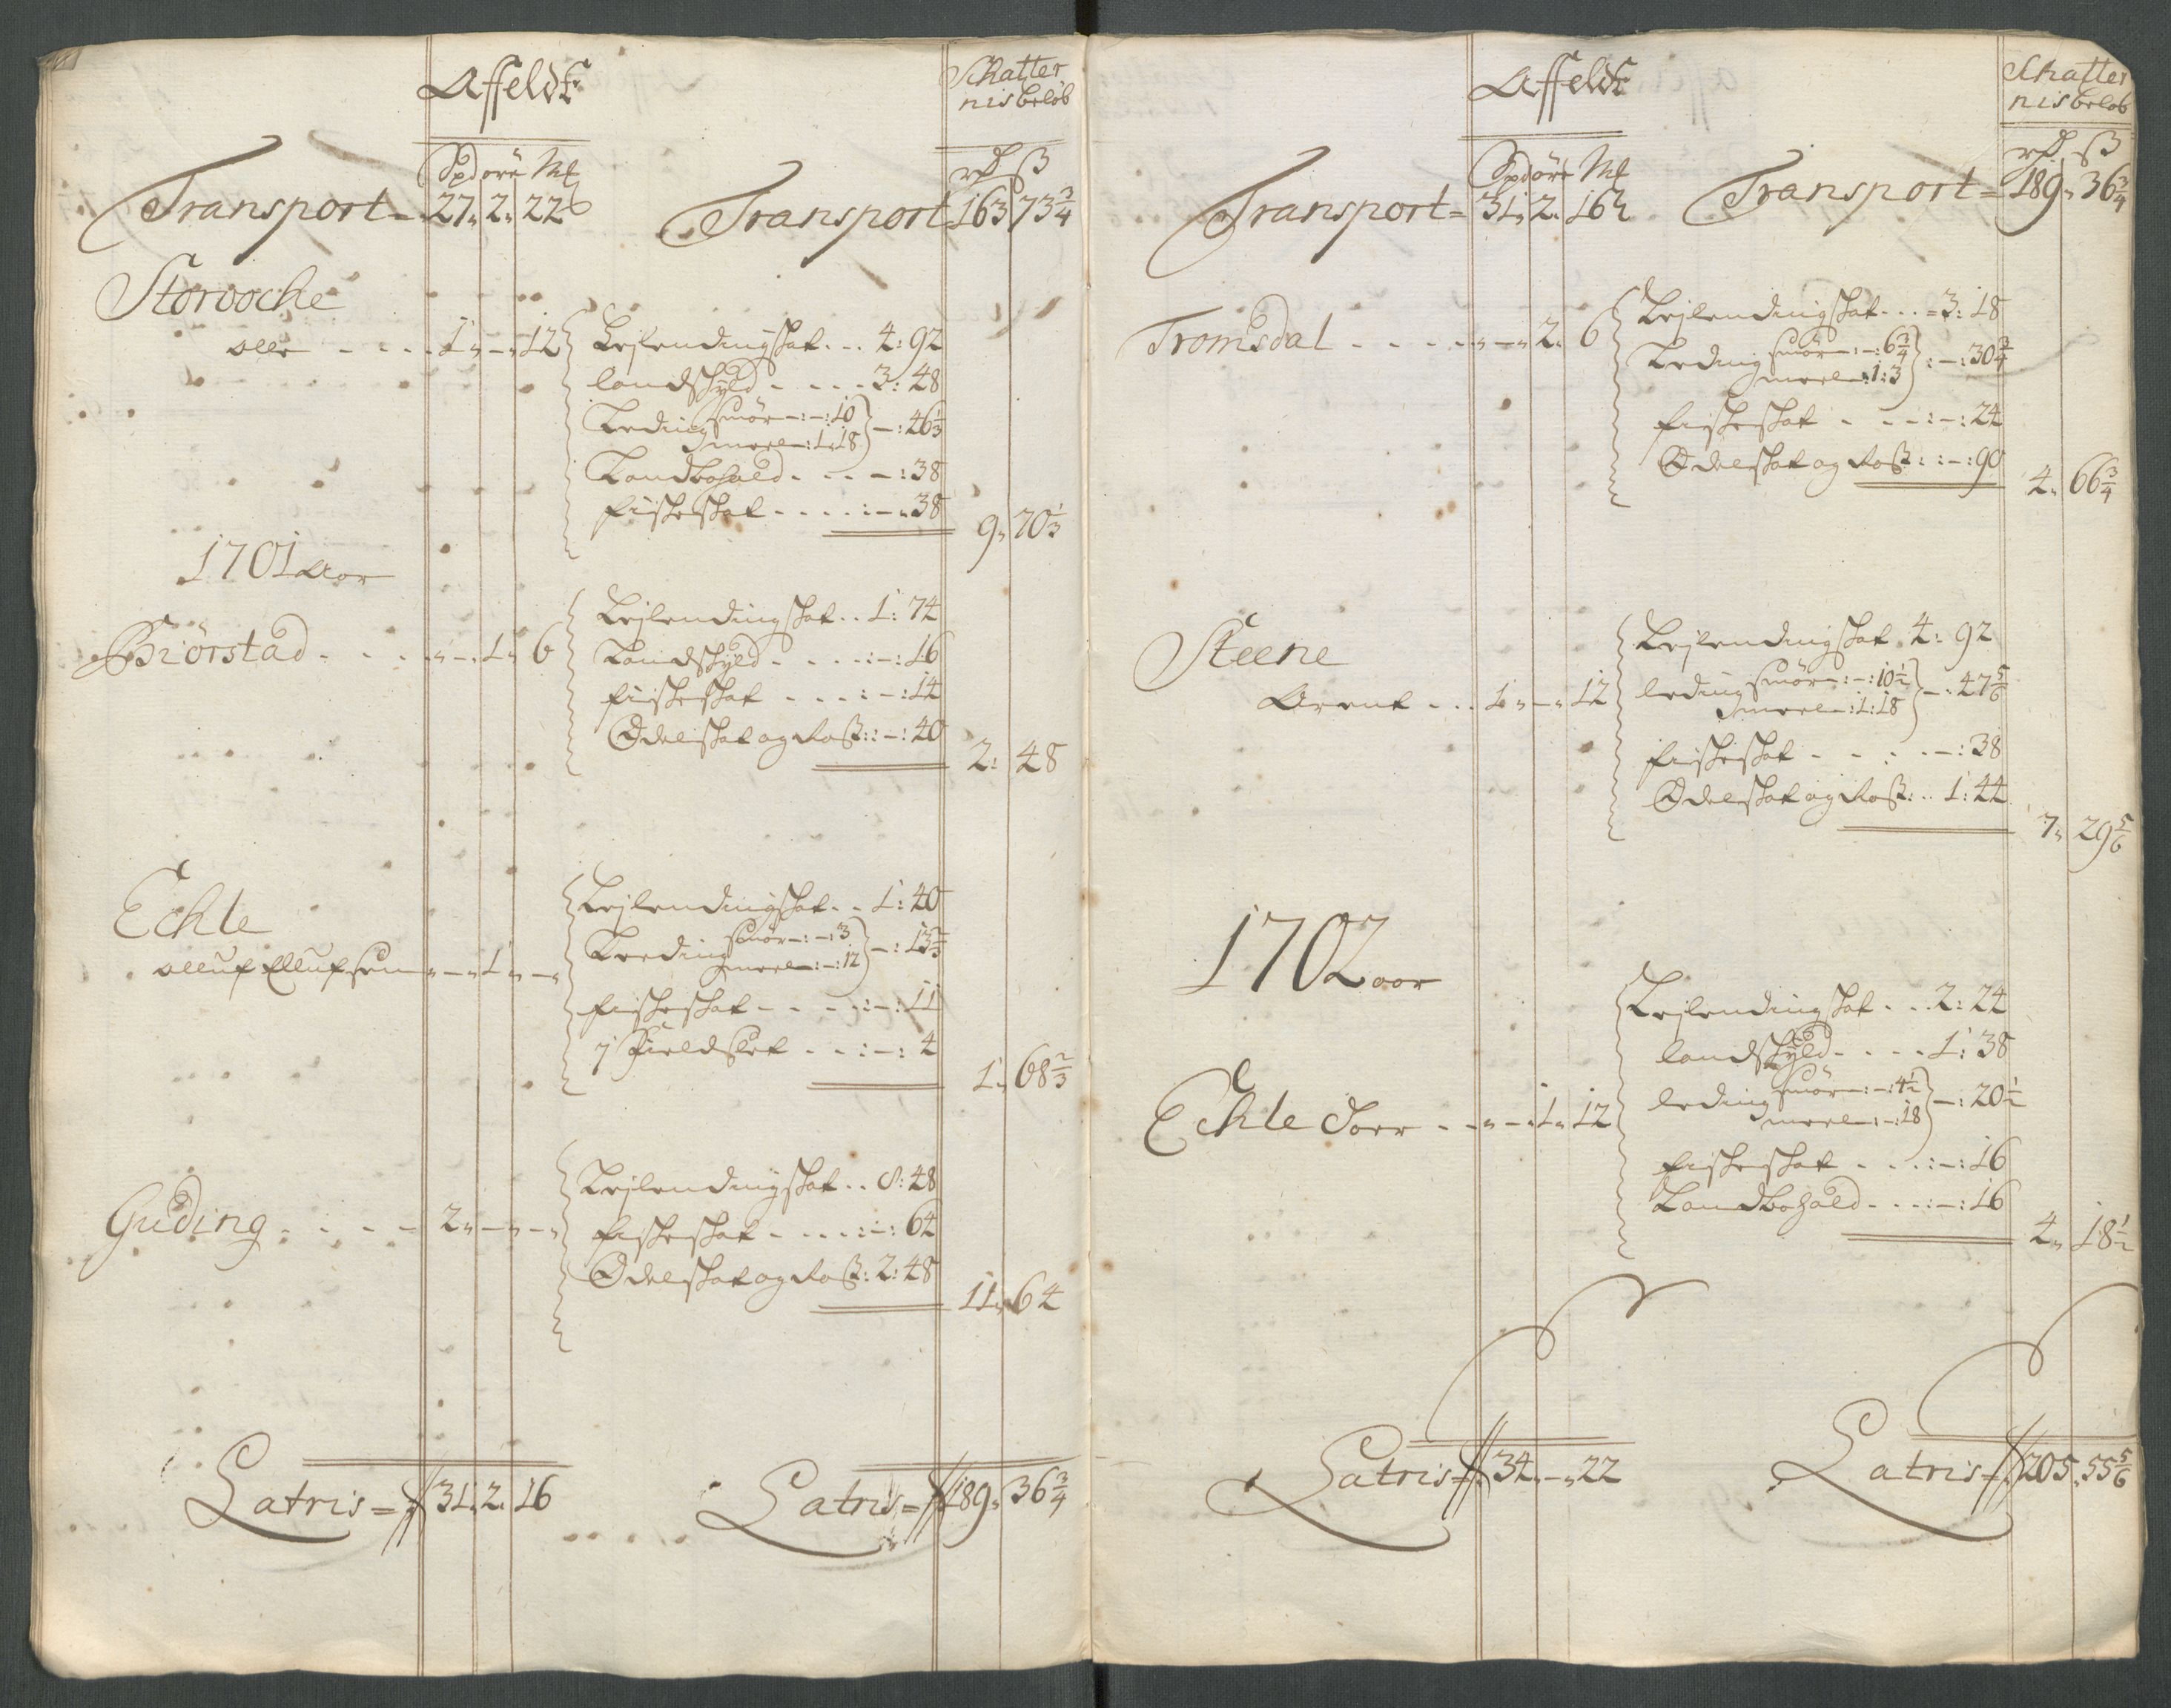 Affeldt
Schatter
nis beløb
Spd øre Mk
rd ß
Transport - 27. 2. 22
Transport 163 73 3/4
Storvoche
olle - - - 1 " - " 12
Leylendingschat . . . 4 : 92
landschyld . . . . 3 : 48
Leding smør - : - : 10
meel - : 1 : 18 } - : 46 1/3
Landbohold . . . - : 38
fisckeschat . . . . : - " 38
9 " 70 1/3
1701 aar
Biörstad . . . " - " 1 " 6
Leylendingschat . . 1 : 74
Landschyld . . . . : - : 16
fischeschat . . . : - : 14
Odelschat og Roß : : - : 40
2 : 48
Echle
olluf Ellufsen " - " 1 " - "
Leylendingschat . . 1 : 40
Leding smør - : - : 3
meel - : - : 12 } - : 13 2/3
fischeschat - . . . : - : 11
j Fieldslet . . : - : 4
1 " 68 2/3
Guding . . . - 2 " - " - "
Leylendingschat . . 8 : 48
fischeschat . . . . : - : 64
Odelschat og Roß : 2 : 48
11 " 64
Latris = 31. 2. 16
Latris = 189 " 36 3/4
Affeldt
Schatter
nis beløb
Spd øre Mk
rd ß
Transport = 31 " 2. 16
Transport = 189 " 36 3/4
Tromsdal . . . . " - " 2. 6
Leylendingschat . . . = 3 : 18
Leding smør - : - : 6 3/4
meel - : 1 : 3 } : - : 30 3/4
fischeschat . . - : - : 24
Odelschat og Roß : : - : 90
4 " 66 3/4
Steene
Arent . . . 1 " - " 12
Leylendingschat 4 : 92
leding smør - : - : 10 1/2
meel - : 1 : 18 } - : 47 5/6
fischeschat - . . . - : 38
Odelschat og Roß : . . 1 : 44
7 " 29 5/6
1702 aar
Echle - - " - " 1 " 12
Leylendingschat . . . 2 : 24
landschyld - . . . 1 : 38
leding smør - : - : 4 1/2
meel - : - : 18 } - : 20 1/2
fischeschat . . . : - : 16
Landbohold . . . : - : 16
4 " 18 1/2
Latris = 34. - " 22
Latris = 205. 55 5/6